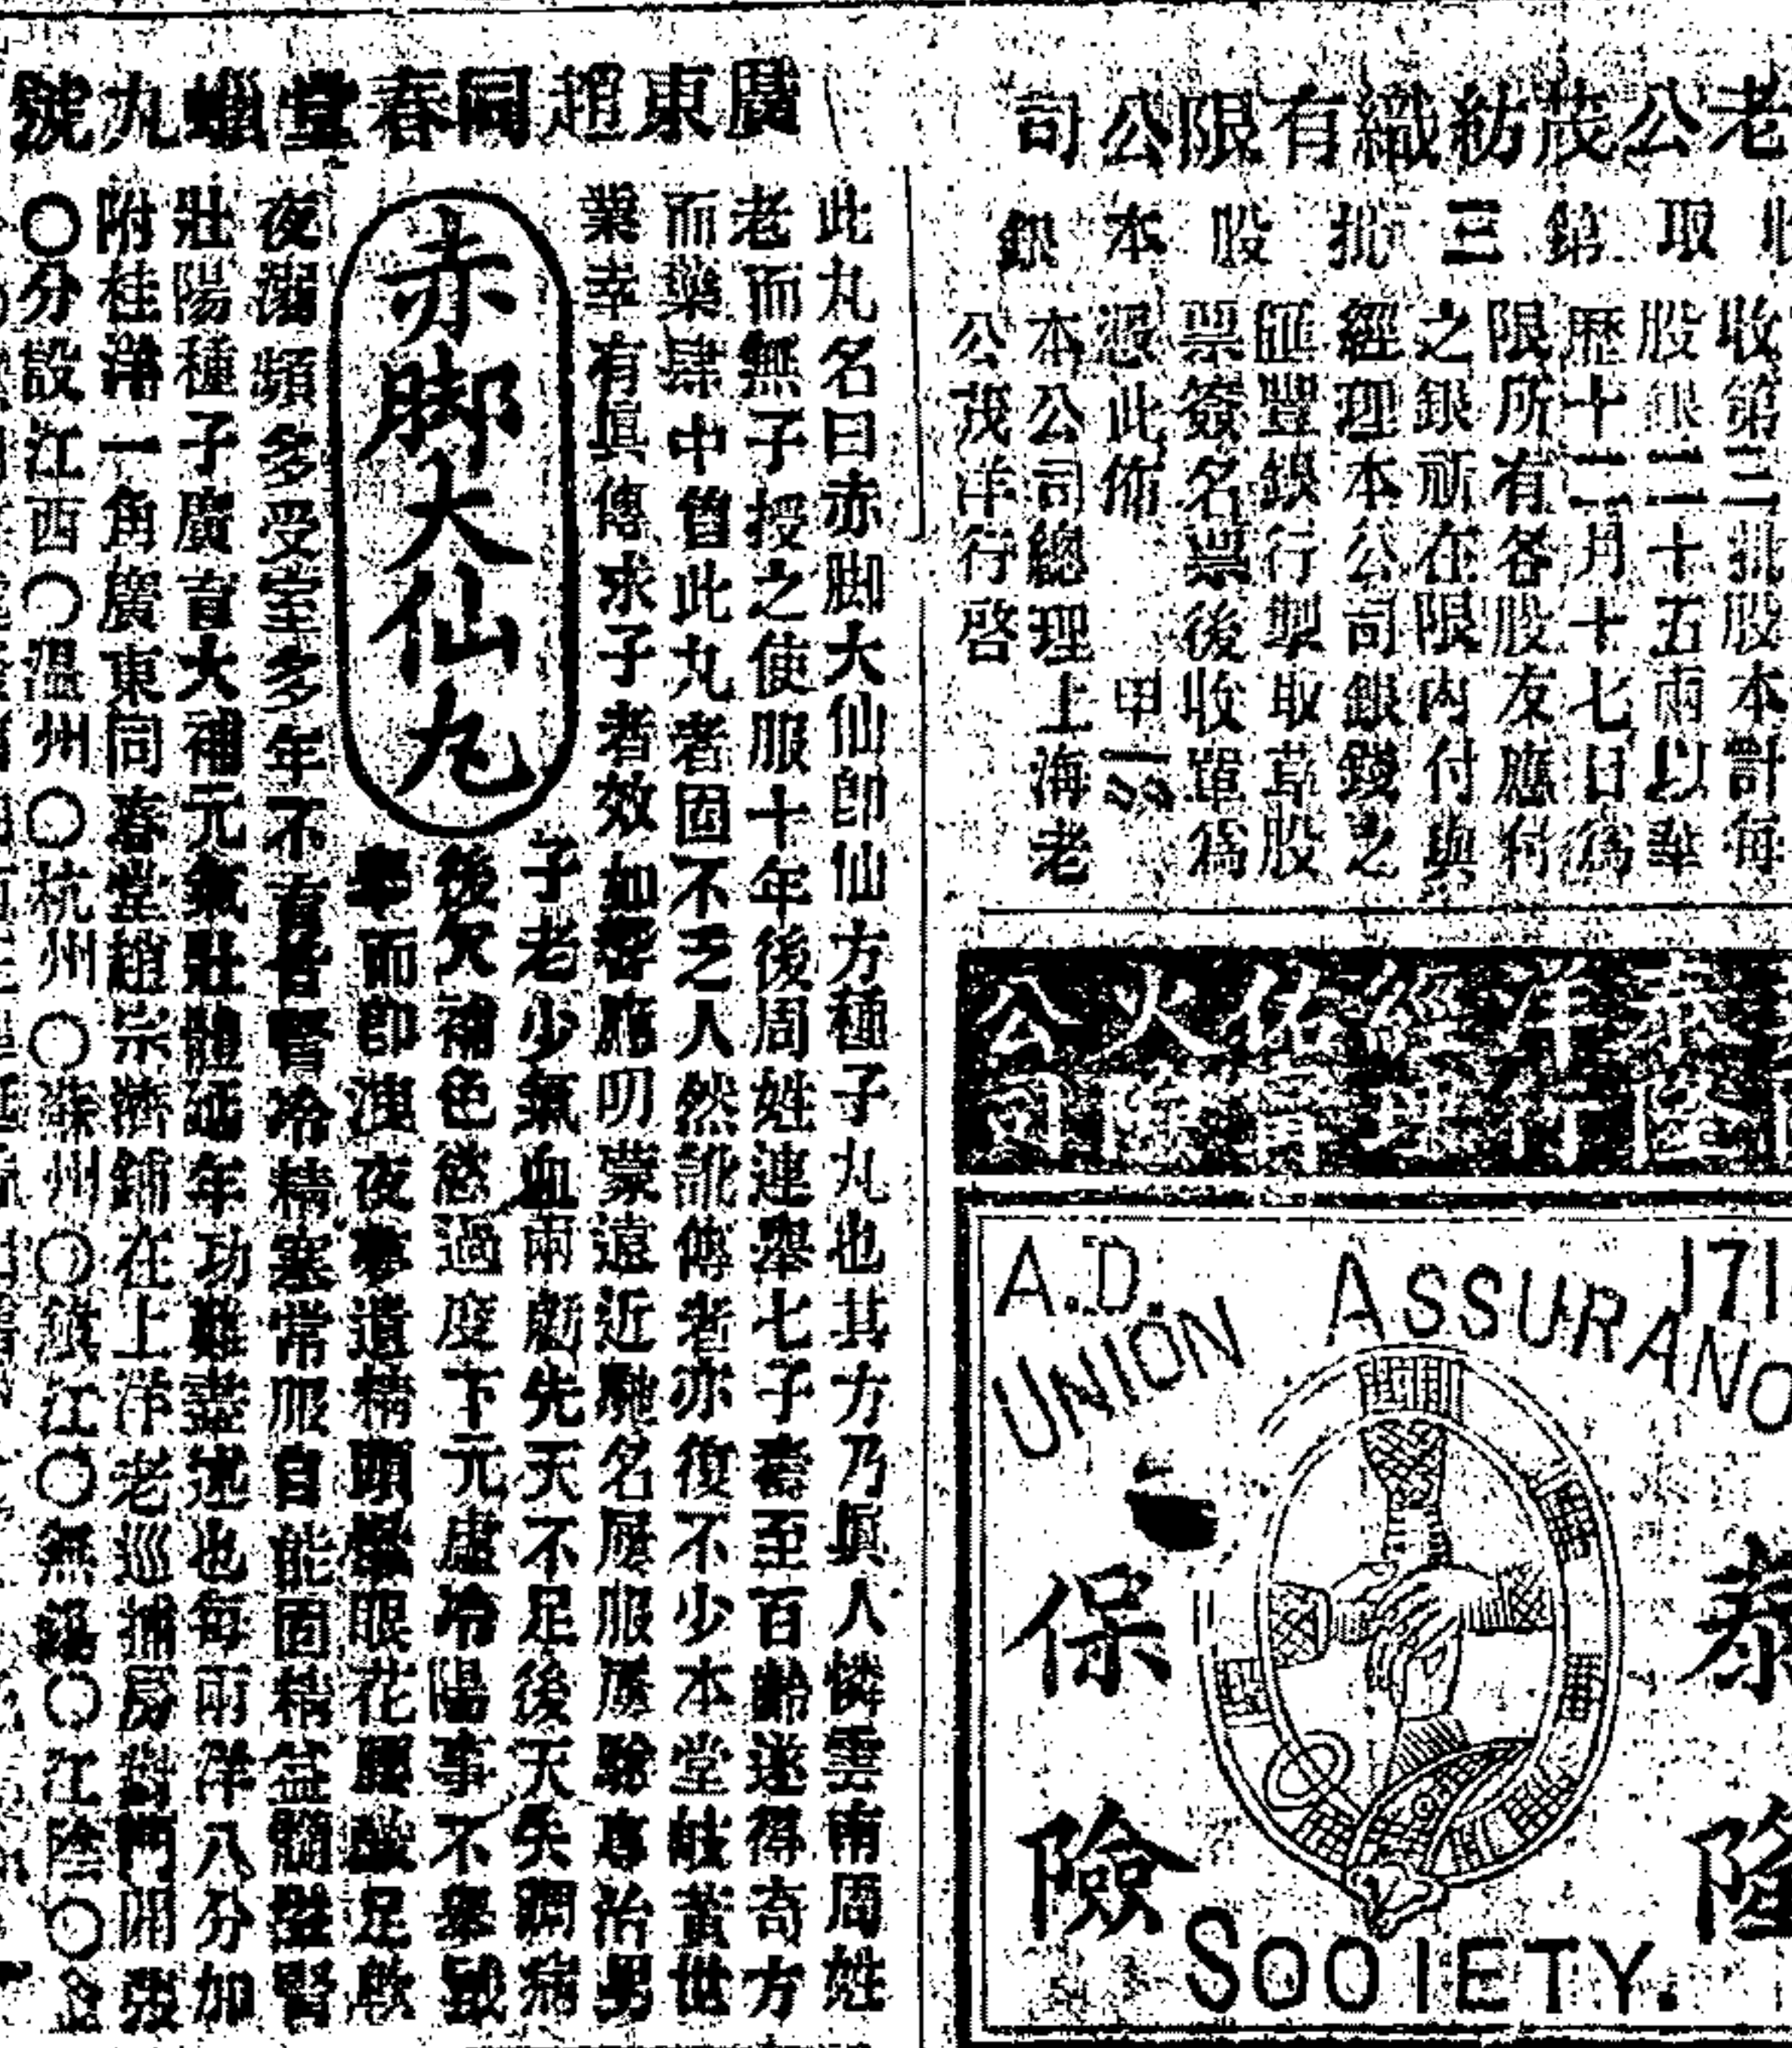 老公茂紡織有限公司
收取第三批股本銀
收第三批股本計每
股銀二十五兩以華
歷十二月十七日為
限所有各股友應付
之銀祈在限內付與
經理本公司銀錢之
匯豐銀行掣取草股
票簽名票後收單為
憑此佈 甲
本公司總理上海老
公茂洋行啓
泰隆洋行經球佑寧火險公司
A.D. 171
UNION ASSURANC
SOCIETY.
泰隆
保險
廣東趙同春堂蠟丸號
此丸名曰赤脚大仙卽仙方種子丸也其方乃眞人憐雲南周姓
老而無子授之使服十年後周姓連舉七子壽至百齡遂得奇方
而藥肆中售此丸者固不乏人然訛傳者亦復不少本堂岐黃世
業幸有眞傳求子者效如響應叨蒙遠近馳名屢服屢驗專治男
赤脚大仙丸
子老少氣血兩虧先天不足後天失調病
後欠補色慾過度下元虛冷陽事不舉或
舉而卽洩夜夢遺精頭暈眼花腰酸足軟
夜溺頻多受室多年不育皆腎冷精寒常服自能固精益髓堅腎
壯陽種子廣育大補元氣壯體延年功難盡述也每兩洋八分加
附桂洋一角廣東同春堂趙宗濟鋪在上洋老巡捕房對門開張
〇分設江西〇溫州〇杭州〇蘇州〇鎮江〇無錫〇江陰〇